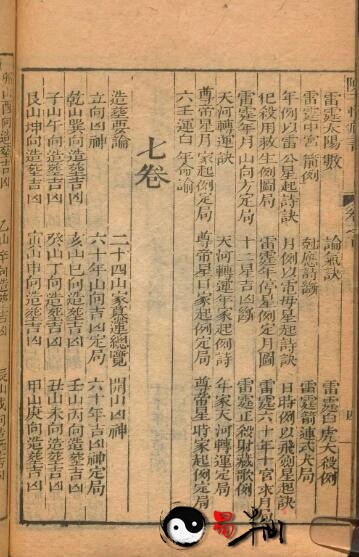 雷霆太陽數 論氣訣 雷霆白虎大殺例
雷霆中宮箭例 尅應詩斷 雷霆箭連式大局
年例以雷公星起詩訣 月例以雷母星起詩訣 日時例以飛劍星起訣
犯殺用救生例圖局 雷霆年停星例定月圖 雷霆六十年十官求月
雷霆年月山向方定局 十二星吉凶斷 雷霆正殺財藏歌例
天河轉運訣 天河轉運年家起例詩 年家天河轉運定局
尊帝星月家起例定局 尊帝星日家起例定局 尊帝星時家起例定局
六壬運白年
七卷
造塟要論 二十四山家墓運總覽 開山凶神
立向凶神 六十年山向吉凶定局 六十年吉凶神定局
乾山巽向造塟吉凶 亥山巳向造塟吉凶 壬山丙向造塟吉凶
子山午向造塟吉凶 癸山丁向造塟吉凶 丑山未向造塟吉凶
艮山坤向造塟吉凶 寅山申向造塟吉凶 甲山庚向造塟吉凶
卯山酉向造塟吉凶 乙山辛向造塟吉凶 辰山戌向造塟吉凶
易半仙